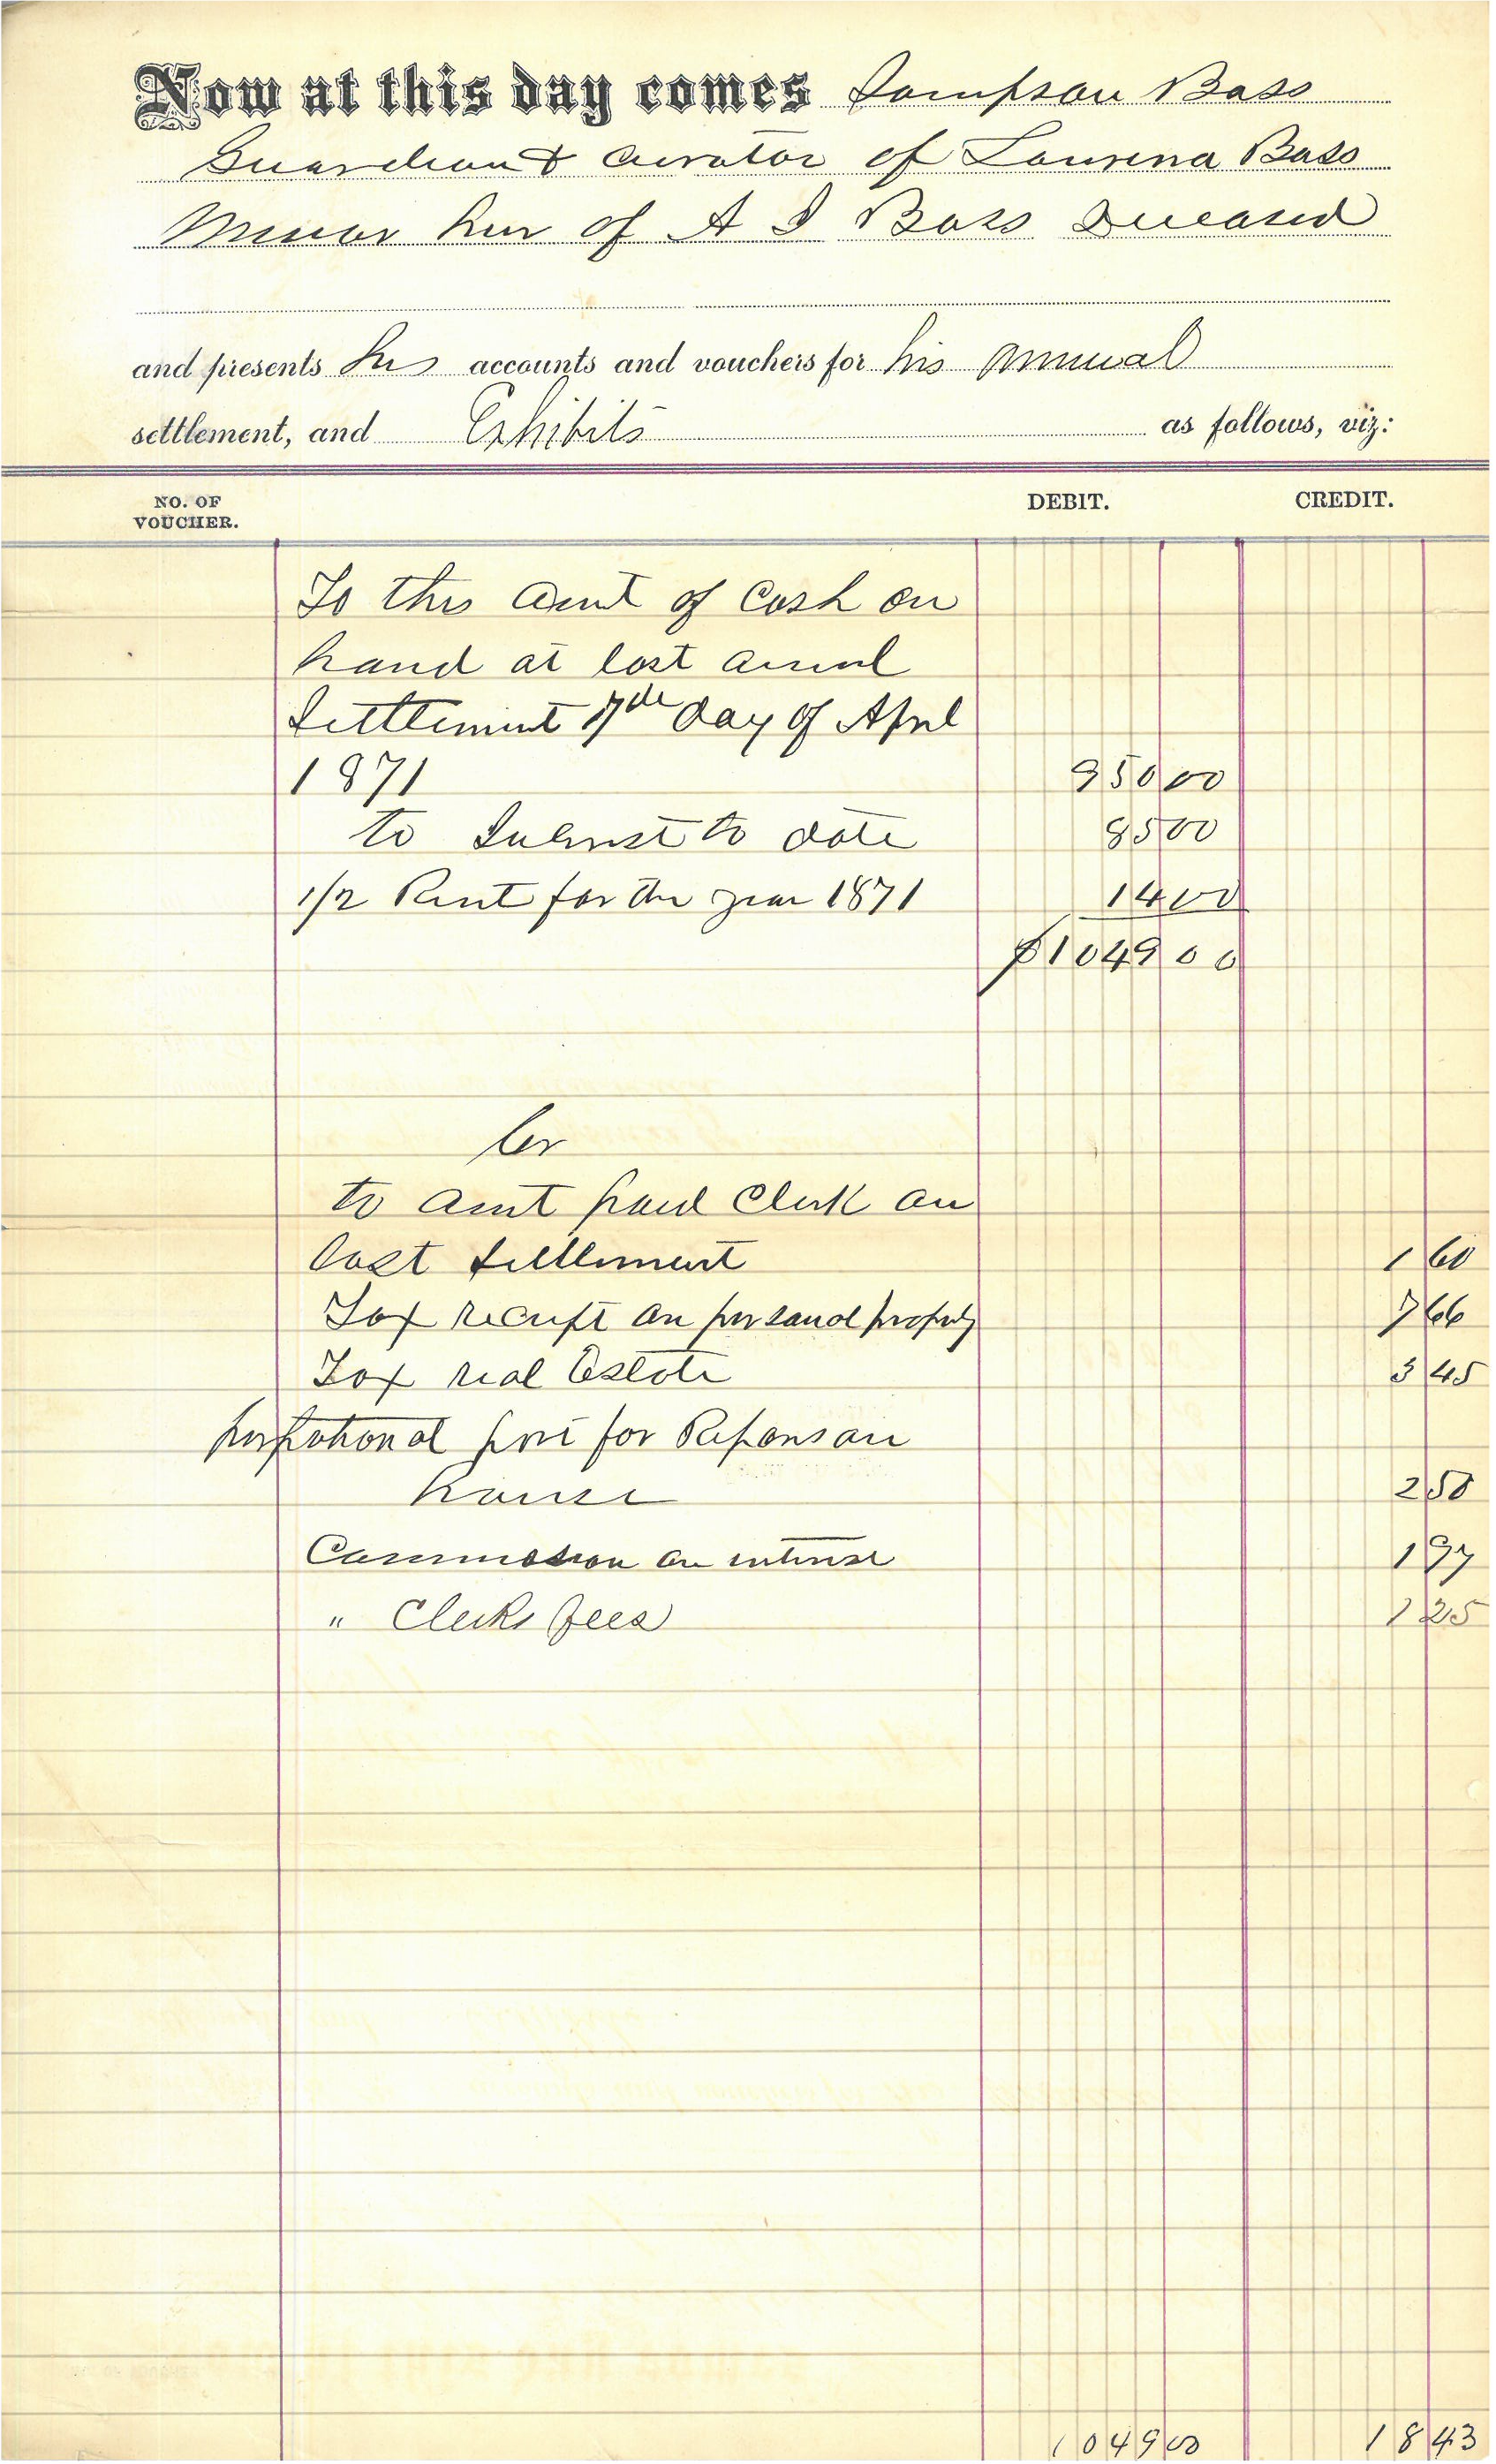 Now at this day comes Sampson Bass
Guardian & Curator of Lourena Bass
Minor heir of A S Bass Deceased
and presents his accounts and vouchers for his annual
settlement, and Exhibits as follows, viz:
NO. OF VOUCHER. DEBIT. CREDIT.
To this Amt of Cash on
hand at last annul
Settlement 17th day of April
1871 950 00
to Interest to date 85 00
1/2 Rent for the year 1871 14 00
$1049 00
Cr
to amt paid Clerk on
last settlement 1 60
Tax receipt on personal property 7 66
Tax real Estate 3 45
porpotional part for Repars on
house 2 50
Commission on interest 1 97
" Clerks fees 1 25
1049 00 18 43